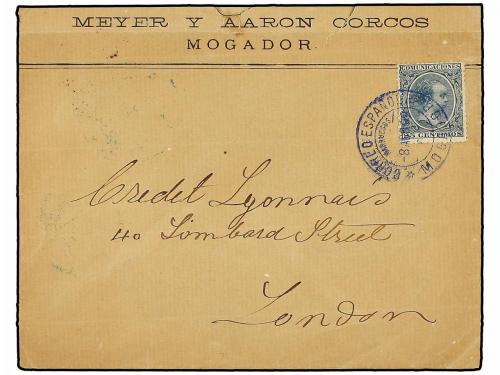 MEYER Y AARON CORCOS
MOGADOR
COMUNICACIONES
CENTIMOS
CORREO ESPAÑOL
Credit Lyonnais
40 Lombard Street
London